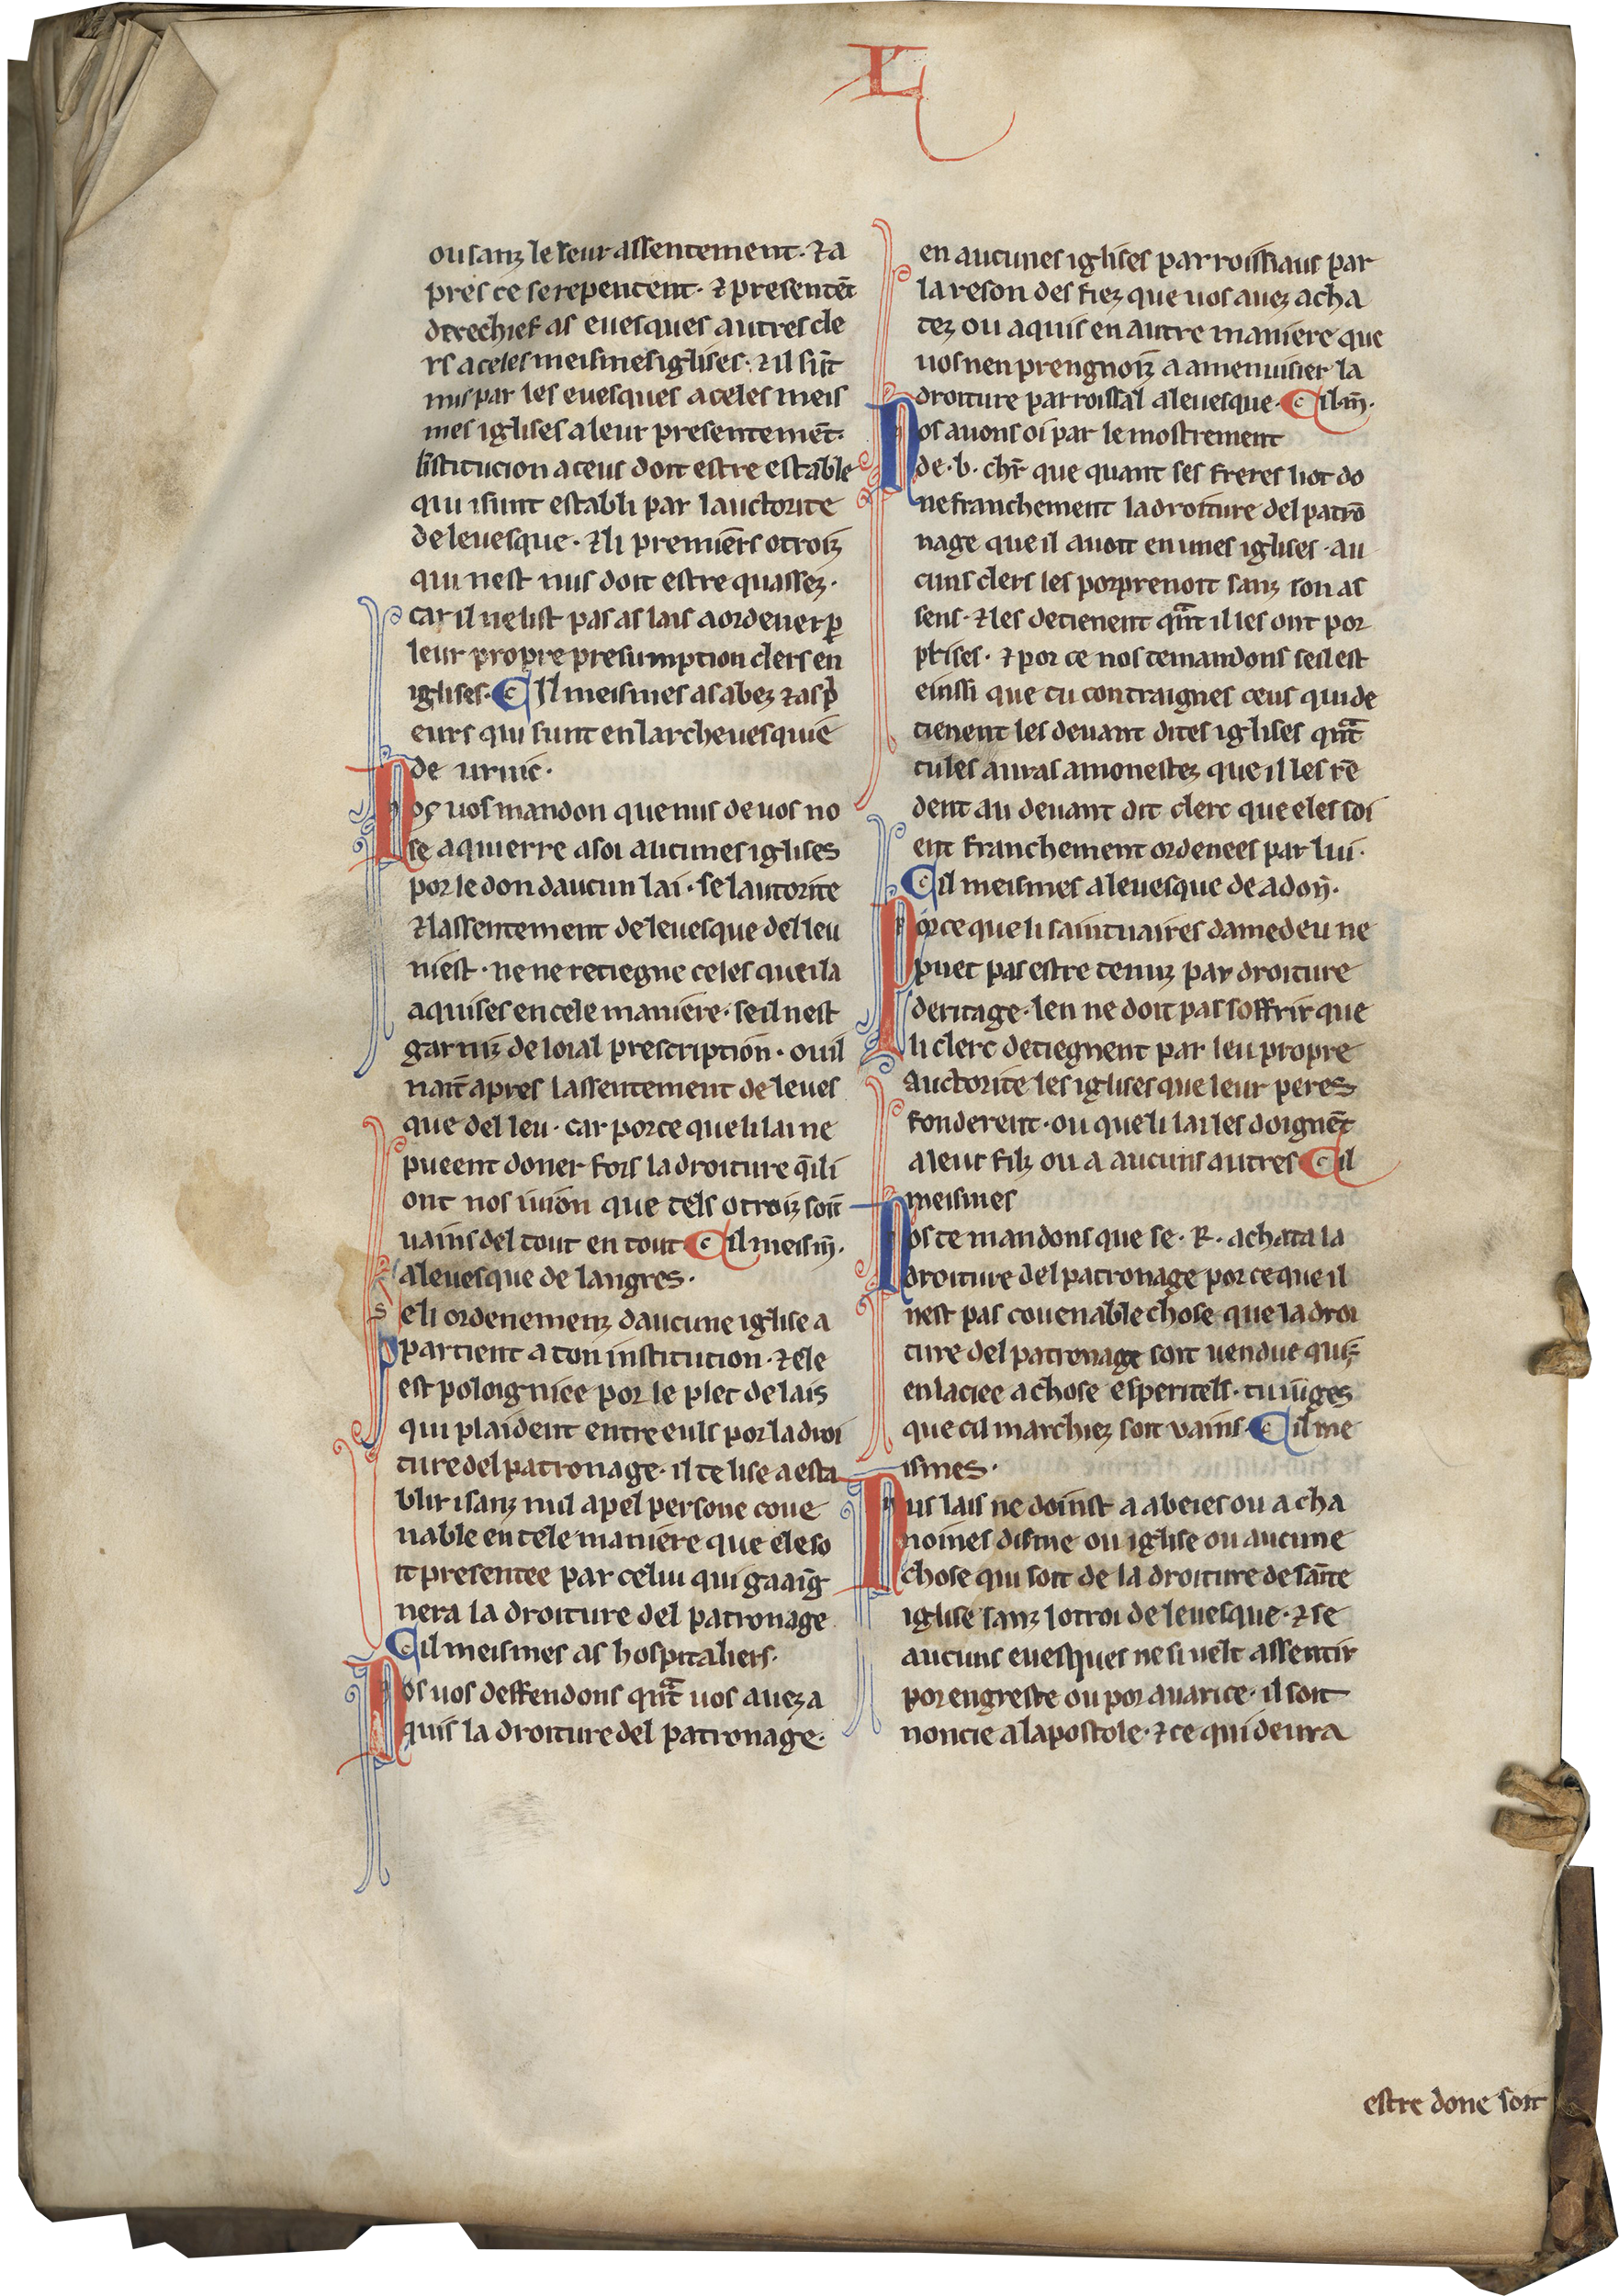 L
ou sanz le leur assentement· ⁊ a
pres ce se repentent· ⁊ presentēt
derechief as euesques autres cle
rs a celes meismes iglises· ⁊ il sūt
mis par les euesques a celes meis
mes iglises a leur presentemēt·
li̅stitucion a ceus doit estre estable
qui i sunt establi par lauctorite
de leuesque· ⁊ li premiers otroiz
qui nest nus doit estre quassez·
car il ne list pas as lais a ordener ꝑ
leur propre presumption clers en
iglises· ¶ Il meismes as abez ⁊ as p̄
eurs qui sunt en larcheuesquie
de uruic·
Nos uos mandon que nus de uos no
se aquierre a soi aucunes iglises
por le don daucun lai· se lautorite
⁊ lassentement de leuesque del leu
niest· ne ne retiegne celes que il a
aquises en cele maniere· se il nest
garniz de loial prescription· ou il
nait apres lassentement de leues
que del leu· car por ce que li lai ne
pueent doner fors la droiture q̄ il i
ont nos iuion que tels otroiz soit̄
uains del tout en tout ¶ il meism̄·
a leuesque de langres·
Se li ordenemenz daucune iglise a
partient a ton institucion· ⁊ ele
est poloigniee por le plet de lais
qui plaident entre euls por la droi
ture del patronage· il te lise a esta
blir i sanz nul apel persone coue
nable en tele maniere que ele so
it presentee par celui qui gaaig̅
nera la droiture del patronage
¶ il meismes as hospitaliers·
Nos uos deffendons qn̄t uos auez a
quis la droiture del patronage·
en aucunes iglises parroissiaus par
la reson des fiez que uos auez acha
tez ou aquis en autre maniere que
uos nen prengnoiz a amenuisier la
droiture parroissal a leuesque· ¶ il·m̄·
Nos auons oi par le mostrement
de·b· chr̄ que quant ses freres li ot do
ne franchement la droiture del patrō
nage que il auoit en unes iglises· au
cuns clers les porprenoit sanz son as
sens· ⁊ les detienent qn̄t il les ont por
prises· ⁊ por ce nos te mandons se il est
einssi que tu contraignes ceus qui de
tienent les deuant dites iglises qn̄t
tu les auras amonestez que il les rē
dent au deuant dit clerc que eles soi
ent franchement ordenees par lui·
¶ il meismes a leuesque de adon̄·
Por ce que li saintuaires damedeu ne
puet pas estre tenuz par droiture
deritage· len ne doit pas soffrir que
li clerc detiegnent par leu propre
auctorite les iglises que leur peres
fonderent· ou que li lai les doignēt
a leur filz ou a aucuns autres ¶ il
meismes
Nos te mandons que se·R· achata la
droiture del patronage por ce que il
nest pas couenable chose que la droi
ture del patronage soit uendue qui ē
enlaciee a chose esperitell· tu iūges
que cil marchiez soit vains· ¶ il me
ismes·
Nus lais ne doinst a abeies ou a cha
noines disme ou iglise ou aucune
chose qui soit de la droiture de sāīte
iglise sanz lotroi de leuesque· ⁊ se
aucuns euesques ne si uelt assentir
por engreste ou por auarice· il soit
noncie a lapostole· ⁊ ce qui deura
estre done soit